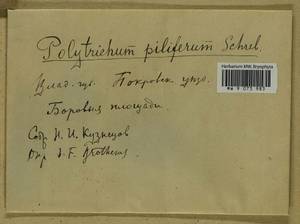 Polytrichum piliferum Schreb.
Herbarium MW, Bryophyta
MW 9 075 985
Влад. губ. Покровск. уезд.
Боровыя площади.
Собр. Н. И. Кузнецов
Опр. V. F. Brotherus